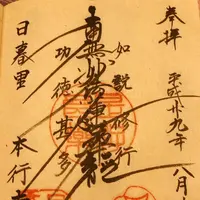 奉拝
平成廿九年
八月
如説修行
南無妙法蓮華経
功徳甚多
日暮里
本行